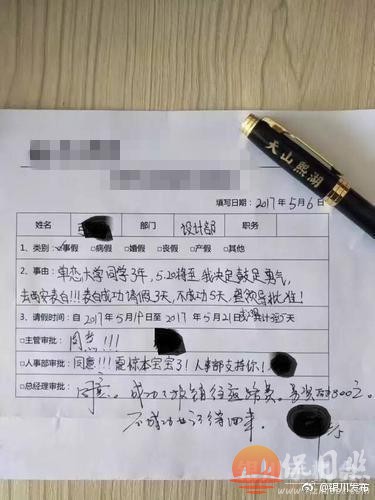 天山熙湖
填写日期: 2017年5月6日
姓名 部门 设计部 职务
1、类别: 事假 □病假 □婚假 □丧假 □产假 □其他
2、事由: 单恋大学同学3年,5.20将至我决定鼓足勇气,
去西安表白!!!表白成功请假3天,不成功5天,望领导批准!
3、请假时间:自2017年5月19日至2017年5月21日 共计 天
□主管审批: 同意!!!
□人事部审批: 同意!!!震惊本宝宝了!人事部支持你!
□总经理审批: 同意。成功了报销往返路费。再奖励800元。
不成功也记得回来。
银川晚报
@银川发布